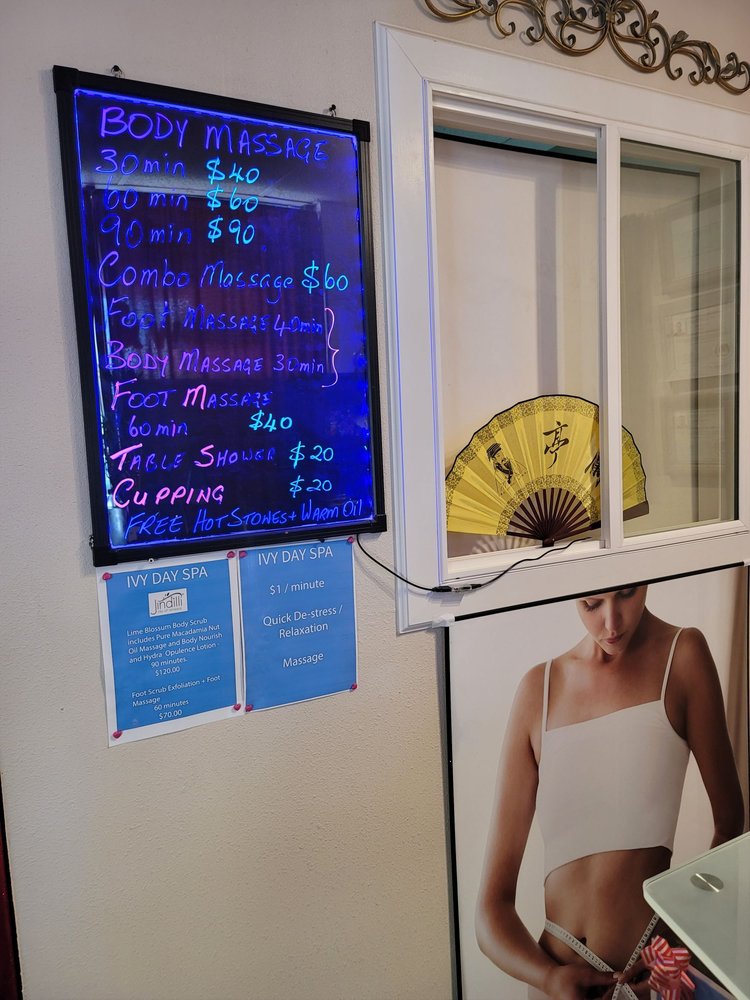 BODY MASSAGE
30min $40
60 min $60
90 min $90
Combo Massage $60
FOOT MASSAGE 40min
BODY MASSAGE 30min
FOOT MASSAGE
60 min $40
TABLE SHOWER $20
CUPPING $20
FREE HOT STONES + WARM OIL
IVY DAY SPA
Jindilli
Lime Blossom Body Scrub
includes Pure Macadamia Nut
Oil Massage and Body Nourish
and Hydra Opulence Lotion -
90 minutes.
$120.00
Foot Scrub Exfoliation + Foot
Massage
60 minutes
$70.00
IVY DAY SPA
$1 / minute
Quick De-stress /
Relaxation
Massage
亭